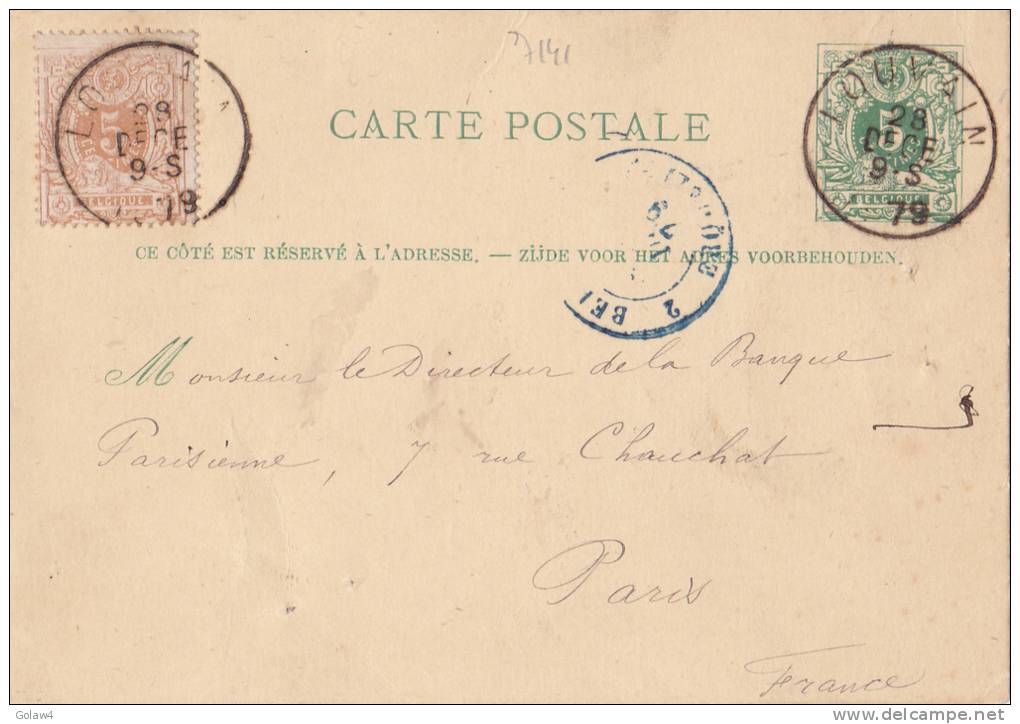 7141
CARTE POSTALE
LO
28
DECE
9-S
79
5
BELGIQUE
LOUVAIN
28
DECE
9-S
79
5
BELGIQUE
CE CÔTÉ EST RÉSERVÉ À L'ADRESSE. — ZIJDE VOOR HET ADRES VOORBEHOUDEN.
2 BEL
Monsieur le Directeur de la Banque
Parisienne, 7 rue Chauchat
Paris
France
Golaw4
delcampe.net